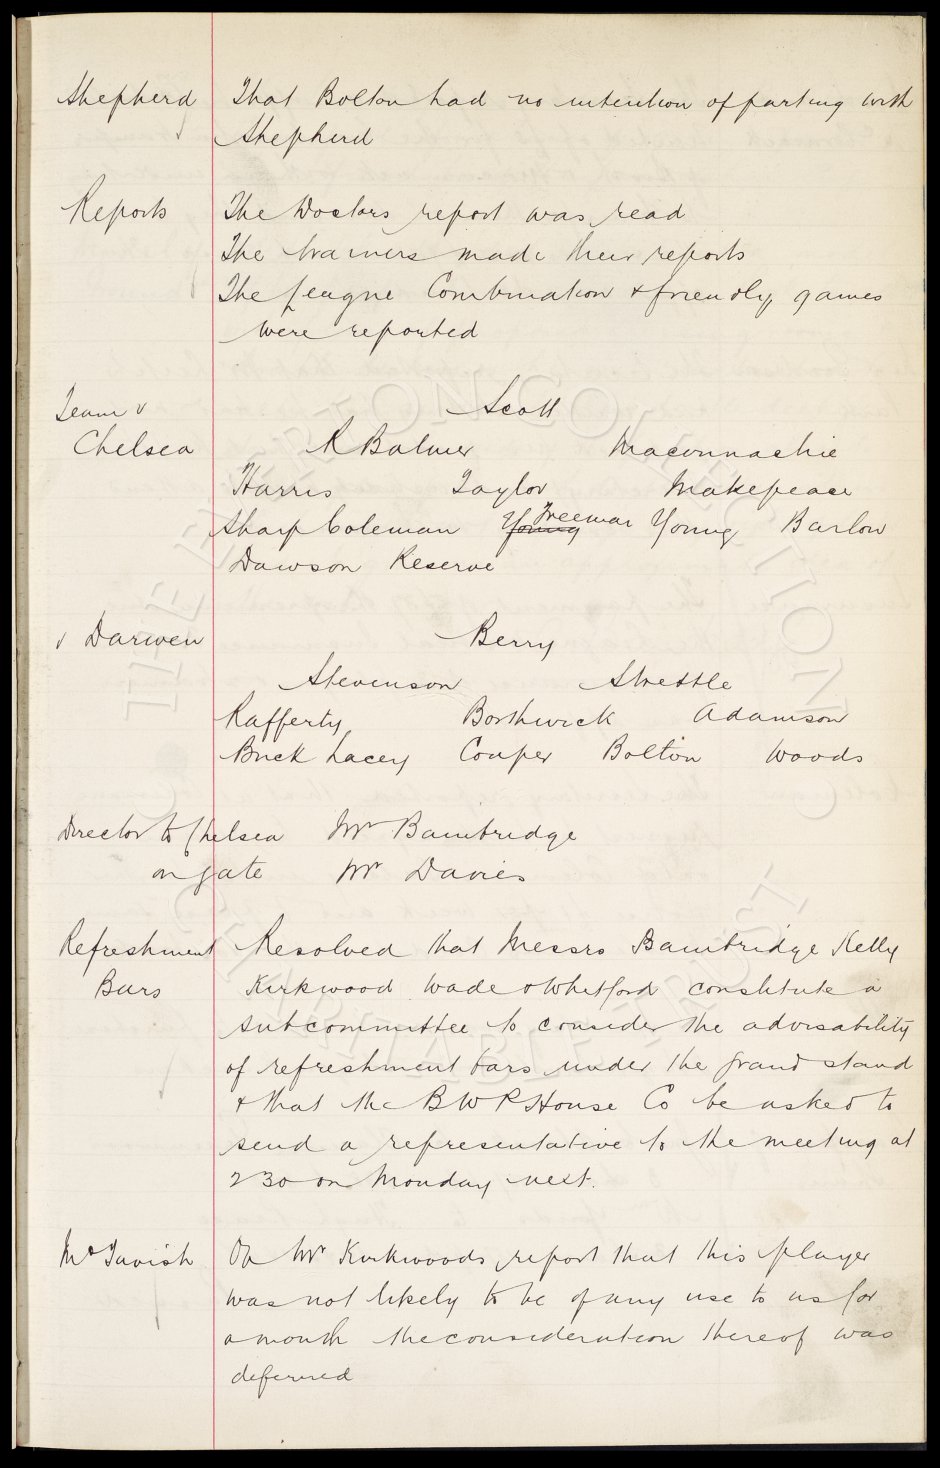 Shepherd That Bolton had no intention of parting with
Shepherd
Reports The Doctors report was read
The trainers made their reports
The League Combination & friendly games
were reported
Team v Scott
Chelsea R Balmer Maconnachie
Harris Taylor Makepeace
Sharp Coleman Young Freeman Young Barlow
Dawson Reserve
v Darwen Berry
Stevenson Strettle
Rafferty Borthwick Adamson
Buck Lacey Couper Bolton Woods
Director to Chelsea Mr Bainbridge
on gate Mr Davies
Refreshment Resolved that Messrs Bainbridge Kelly
Bars Kirkwood Wade & Whitford constitute a
subcommittee to consider the advisability
of refreshment bars under the grand stand
& that the B W P House Co be asked to
send a representative to the meeting at
2 30 on Monday next.
McTavish On Mr Kirkwoods report that this player
was not likely to be of any use to us for
a month the consideration thereof was
deferred
THE EVERTON COLLECTION
CHARITABLE TRUST